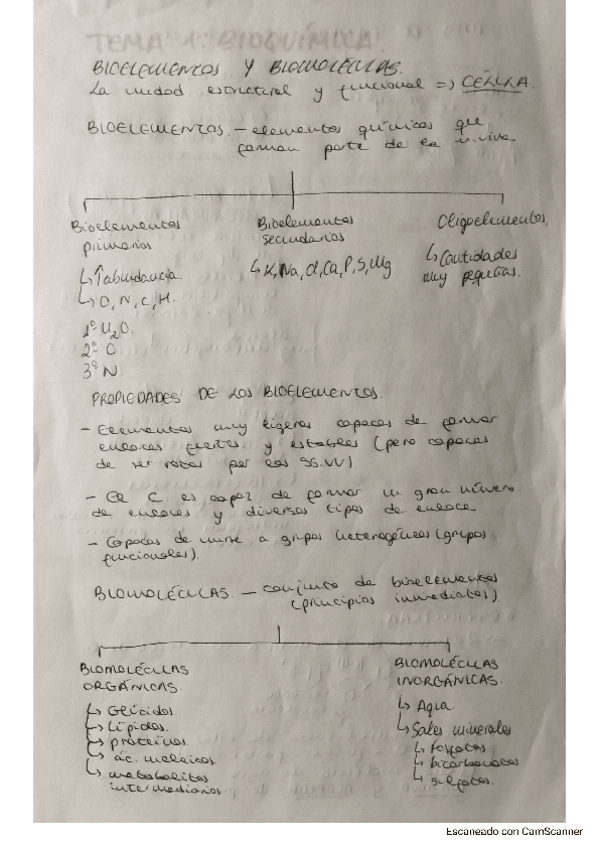 TEMA 1: BIOQUÍMICA
BIOELEMENTOS Y BIOMOLÉCULAS.
La unidad estructural y funcional => CÉLULA.
BIOELEMENTOS. - elementos químicos que
forman parte de la m. viva
Bioelementos
primarios
↳ ↑abundancia
↳ O, N, C, H.
1º H2O.
2º C
3º N
Bioelementos
secundarios
↳ K, Na, Cl, Ca, P, S, Mg
Oligoelementos.
↳ Cantidades
muy pequeñas.
PROPIEDADES DE LOS BIOELEMENTOS.
- Elementos muy ligeros capaces de formar
enlaces fuertes y estables (pero capaces
de ser rotos por los SS.VV)
- El C es capaz de formar un gran número
de enlaces y diversos tipos de enlace
- Capaces de unirse a grupos heterogéneos (grupos
funcionales).
BIOMOLÉCULAS. - conjunto de bioelementos
(principios inmediatos)
BIOMOLÉCULAS
ORGÁNICAS.
↳ Glúcidos
↳ Lípidos
↳ proteínas
↳ ác. nucleicos
↳ metabolitos
intermediarios
BIOMOLÉCULAS
INORGÁNICAS.
↳ Agua.
↳ Sales minerales
↳ fosfatos
↳ bicarbonatos
↳ sulfatos.
Escaneado con CamScanner